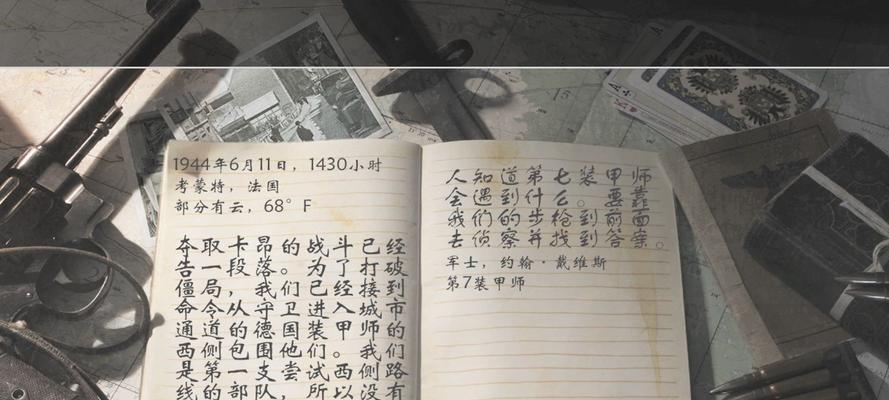 1944年6月11日，1430小时
考蒙特，法国
部分有云，68° F
夺取卡昂的战斗已经
告一段落。为了打破
僵局，我们已经接到
命令从守卫进入城市
通道的德国装甲师的
西侧包围他们。我们
是第一支尝试西侧路
线的部队，所以没有
人知道第七装甲师
会遇到什么。要靠
我们的步枪到前面
去侦察并找到答案。
军士，约翰·戴维斯
第7装甲师